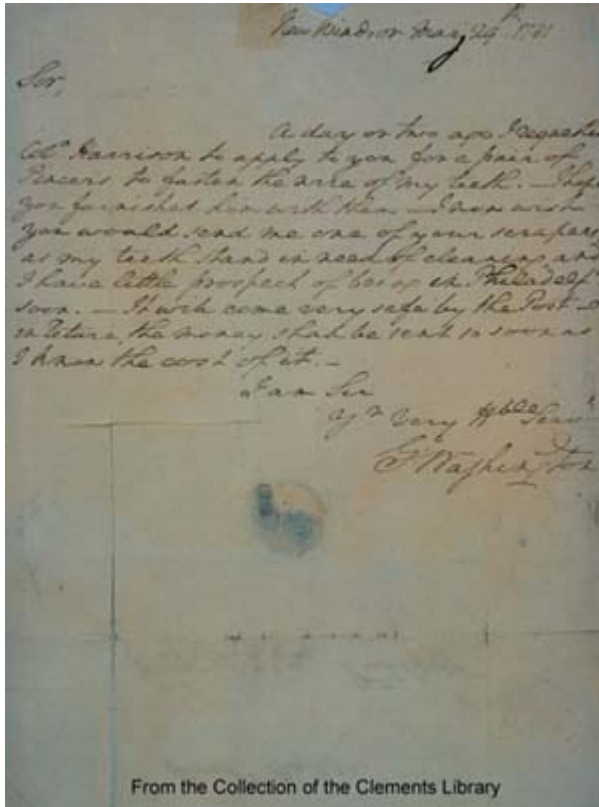 New Windsor May 29th 1781
Sir,
A day or two ago I requested
Colo Harrison to apply to you for a pair of
Pincers to fasten the wire of my teeth. — I hope
you furnished him with them — I now wish
you would send me one of your scrapers
as my teeth stand in need of cleaning, and
I have little prospect of being in Philadelp
soon. — It will come very safe by the Post — &
in return, the money shall be sent so soon as
I know the cost of it. —
I am Sir
Yr Very Hble Servt
Go Washington
From the Collection of the Clements Library